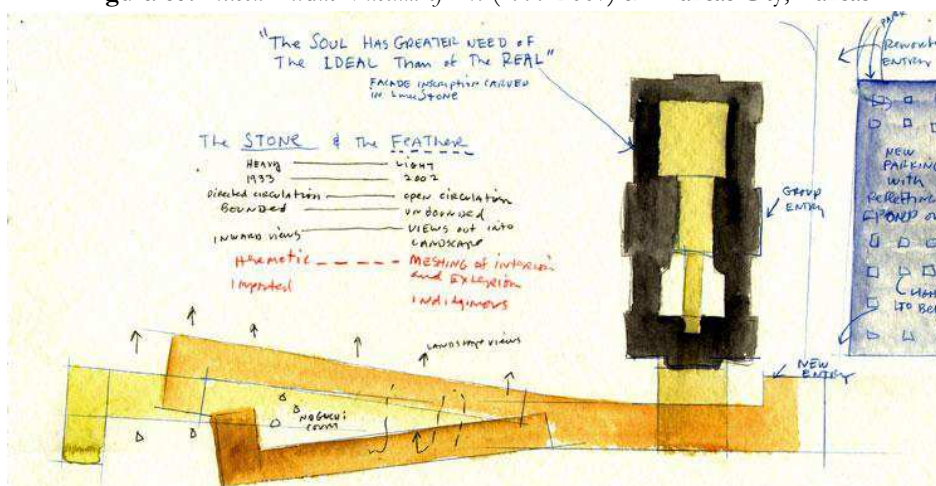 "The SOUL HAS GREATER NEED OF
The IDEAL Than of The REAL"
FACADE INSCRIPTION CARVED
IN LIMESTONE
The STONE & the FEATHER
HEAVY LIGHT
1933 2002
Directed circulation open circulation
BOUNDED UNBOUNDED
INWARD VIEWS VIEWS OUT INTO
LANDSCAPE
Hermetic MESHING OF INTERIOR
and EXTERIOR
Imported INDIGENOUS
LANDSCAPE VIEWS
NOGUCHI
COURT
GROUP
ENTRY
NEW
ENTRY
PARK
ENTRY
NEW
PARKING
with
POND